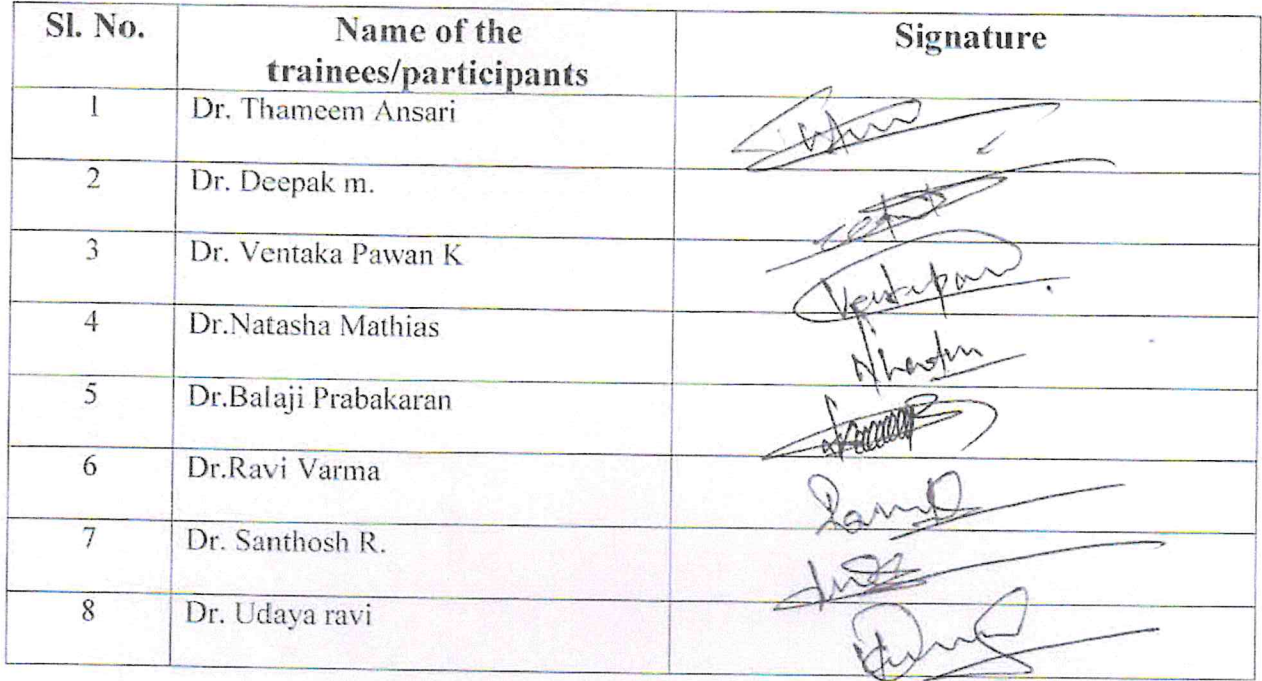 Sl. No. Name of the trainees/participants Signature
1 Dr. Thameem Ansari
2 Dr. Deepak m.
3 Dr. Ventaka Pawan K
4 Dr.Natasha Mathias
5 Dr.Balaji Prabakaran
6 Dr.Ravi Varma
7 Dr. Santhosh R.
8 Dr. Udaya ravi